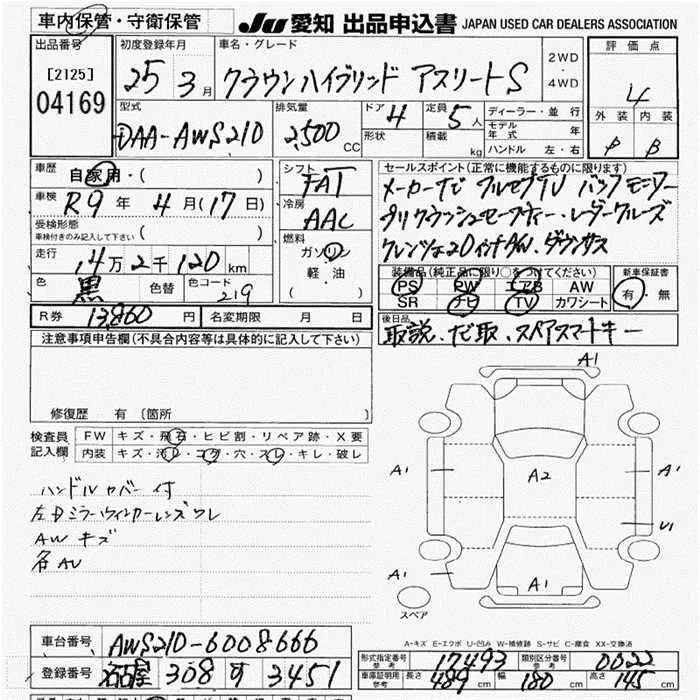 車内保管・守衛保管 JU 愛知 出品申込書 JAPAN USED CAR DEALERS ASSOCIATION
出品番号 初度登録年月 車名・グレード 評価点
[2125] 04169 25 3月 クラウンハイブリッド アスリートS 2WD ・ 4WD 4
型式 排気量 ドア 4 定員 5人 ディーラー・並行 外装 内装
DAA-AWS210 2,500 CC 形状 積載 kg モデル年式 年 B
ハンドル 左・右
車歴 自家用・( ) シフト FAT セールスポイント(正常に機能するものに限ります)
車検 R9年 4月(17日) 冷房 AAC メーカーナビ フルセグTV バックモニター
受検形態 車検付きのみ記入して下さい ( ) 燃料 プリクラッシュセーフティー・レーダークルーズ
走行 14万2千120km ガソリン 軽・油 ( )
色 黒 色替 色コード 219 装備品(純正品に限り○をつけてください) 新車保証書
PS PW エアB AW 有・無
SR ナビ TV カワシート
R券 13,860円 名変期限 月 日 後日品
注意事項申告欄(不具合内容等は具体的に記入して下さい) 取説、ナビ取、スペアスマートキー
修復歴 有 〔箇所 〕
検査員記入欄 FW キズ・飛石・ヒビ割・リペア跡・X要
内装 キズ・汚レ・コゲ・穴・スレ・キレ・破レ
ハンドルカバー付
左Dミラーウィンカーレンズワレ
AWキズ
各AU
A1
A1 A2 A1
U1
A1 A1
スペア
A-キズ E-エクボ U-凹み W-補修跡 S-サビ C-腐食 XX-交換済
車台番号 AWS210-6008666 形式指定番号 参考 17493 類別区分番号 参考 0022
登録番号 名古屋 308 す 3451 車庫証明用 参考 長さ 489cm 幅 180cm 高さ 145cm